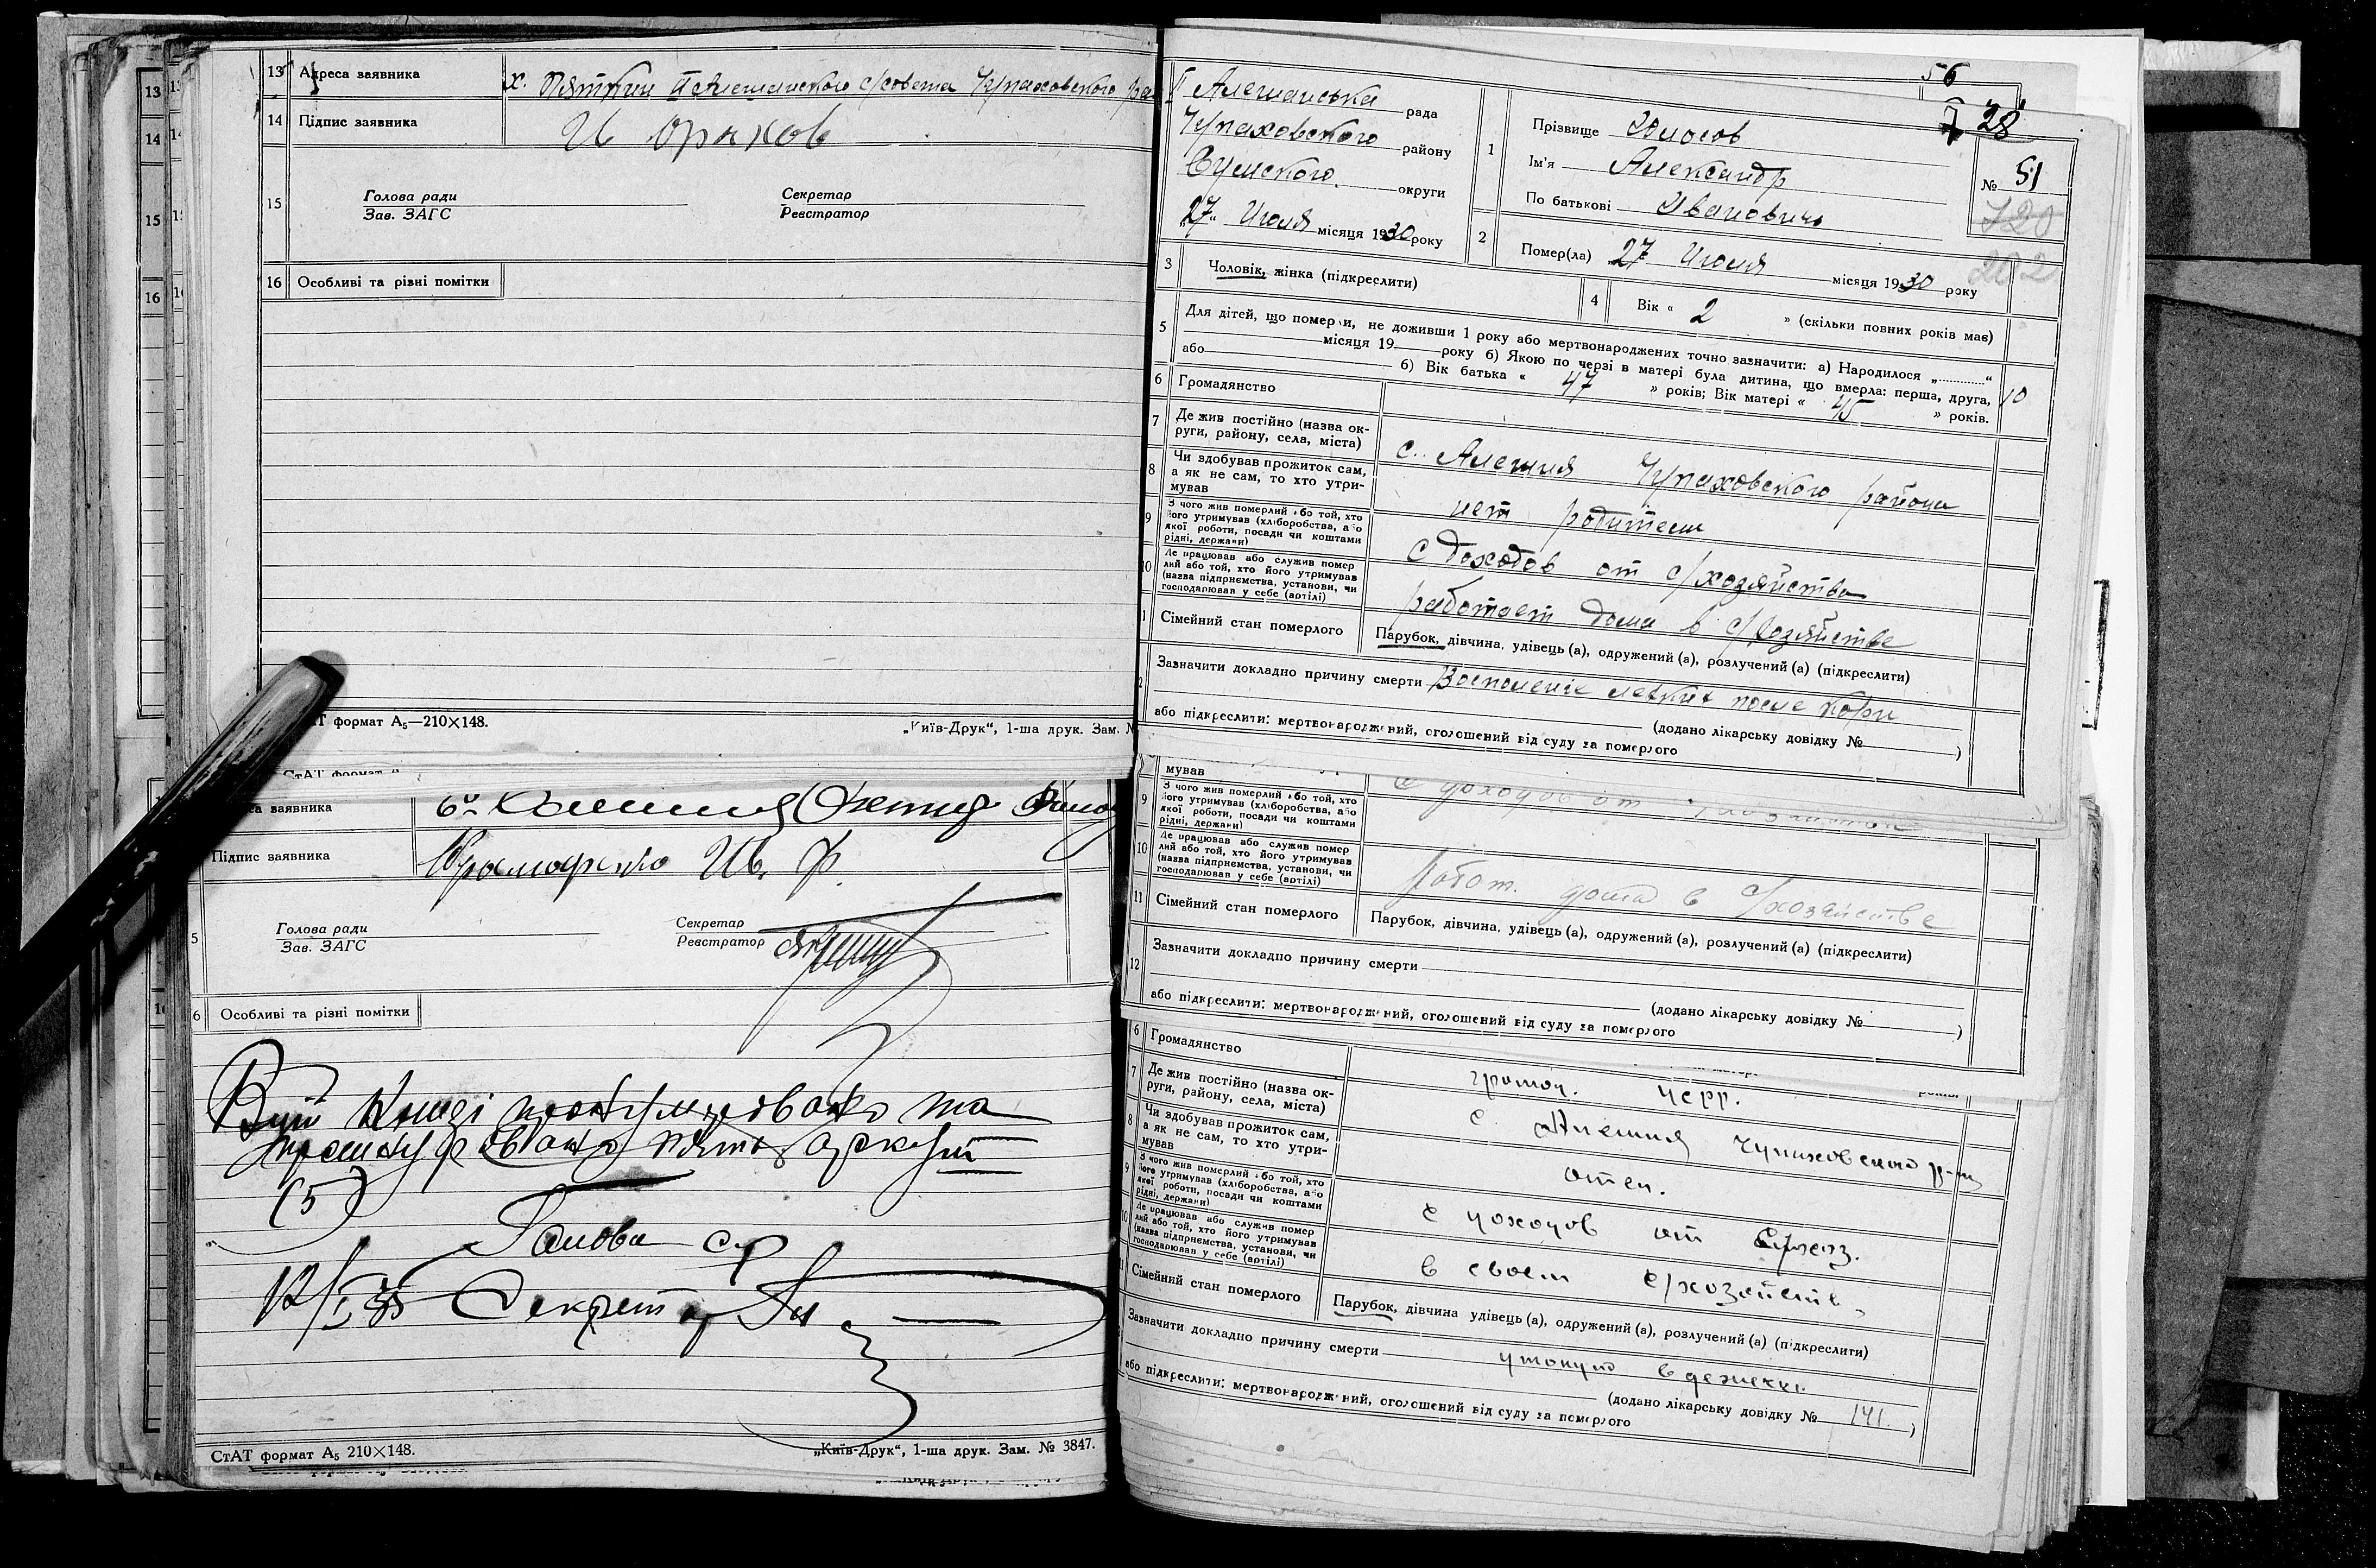 13 Адреса заявника х. Пяткин II Алешанского с/совета Чупаховского
14 Підпис заявника
15
Голова ради
Зав. ЗАГС
Секретар
Реєстратор
16 Особливі та різні помітки
формат А5—210×148.
„Київ-Друк“, 1-ша друк. Зам. №
заявника
Підпис заявника Крамаренко Ив. Ф.
5
Голова ради
Зав. ЗАГС
Секретар
Реєстратор
6 Особливі та різні помітки
(5)
Голова с/р
Секретар
СтАТ формат А5 210×148.
„Київ-Друк“, 1-ша друк. Зам. № 3847.
56
28
II Алешанська рада
Чупаховского району
Сумского округи
„27“ Июля місяця 1930 року
1 Прізвище
Ім'я Александр
По батькові Иванович
№ 51
720
202
2 Помер(ла) 27 Июля місяця 1930 року
3 Чоловік, жінка (підкреслити)
4 Вік « 2 » (скільки повних років має)
5 Для дітей, що померли, не доживши 1 року або мертвонароджених точно зазначити: а) Народилося „............“
місяця 19 року б) Якою по черзі в матері була дитина, що вмерла: перша, друга,
або 10 б) Вік батька « 47 » років; Вік матері « 45 » років.
6 Громадянство
7 Де жив постійно (назва округи, району, села, міста) с. Алешня Чупаховского района
8 Чи здобував прожиток сам, а як не сам, то хто утримував нет родители
9 З чого жив померлий або той, хто його утримував (хліборобства, або якої роботи, посади чи коштами рідні, держави) С доходов от с/хозяйства
10 Де працював або служив померлий або той, хто його утримував (назва підприємства, установи, чи господарював у себе (артілі) работает дома в с/хозяйстве
Сімейний стан померлого Парубок, дівчина, удівець (а), одружений (а), розлучений (а) (підкреслити)
Зазначити докладно причину смерти Воспаление легких после кори
(додано лікарську довідку № )
або підкреслити: мертвонароджений, оголошений від суду за померлого
мував
9 З чого жив померлий або той, хто його утримував (хліборобства, або якої роботи, посади чи коштами рідні, держави) С доходов от
10 Де працював або служив померлий або той, хто його утримував (назва підприємства, установи, чи господарював у себе (артілі) Работ. дома в с/хозяйстве
11 Сімейний стан померлого Парубок, дівчина, удівець (а), одружений (а), розлучений (а) (підкреслити)
12 Зазначити докладно причину смерти
(додано лікарську довідку № )
або підкреслити: мертвонароджений, оголошений від суду за померлого
6 Громадянство
7 Де жив постійно (назва округи, району, села, міста) с. Алешня Чупаховский р-н
8 Чи здобував прожиток сам, а як не сам, то хто утримував отец.
9 З чого жив померлий або той, хто його утримував (хліборобства, або якої роботи, посади чи коштами рідні, держави) с доходов от с/хоз.
Де працював або служив померлий або той, хто його утримував (назва підприємства, установи, чи господарював у себе (артілі) в своем с/хозяйств.
Сімейний стан померлого Парубок, дівчина удівець (а), одружений (а), розлучений (а) (підкреслити)
Зазначити докладно причину смерти утонул
(додано лікарську довідку № 141. )
або підкреслити: мертвонароджений, оголошений від суду за померлого